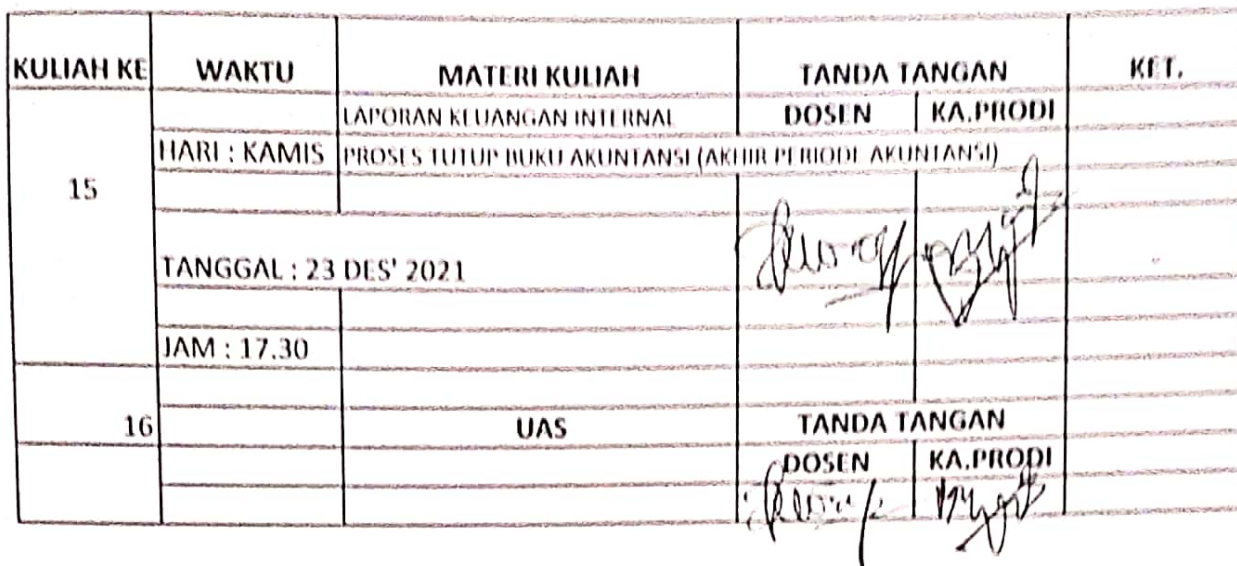 KULIAH KE WAKTU MATERI KULIAH TANDA TANGAN KET.
LAPORAN KEUANGAN INTERNAL DOSEN KA.PRODI
HARI : KAMIS PROSES TUTUP BUKU AKUNTANSI (AKHIR PERIODE AKUNTANSI)
15
TANGGAL : 23 DES' 2021
JAM : 17.30
16 UAS TANDA TANGAN
DOSEN KA.PRODI